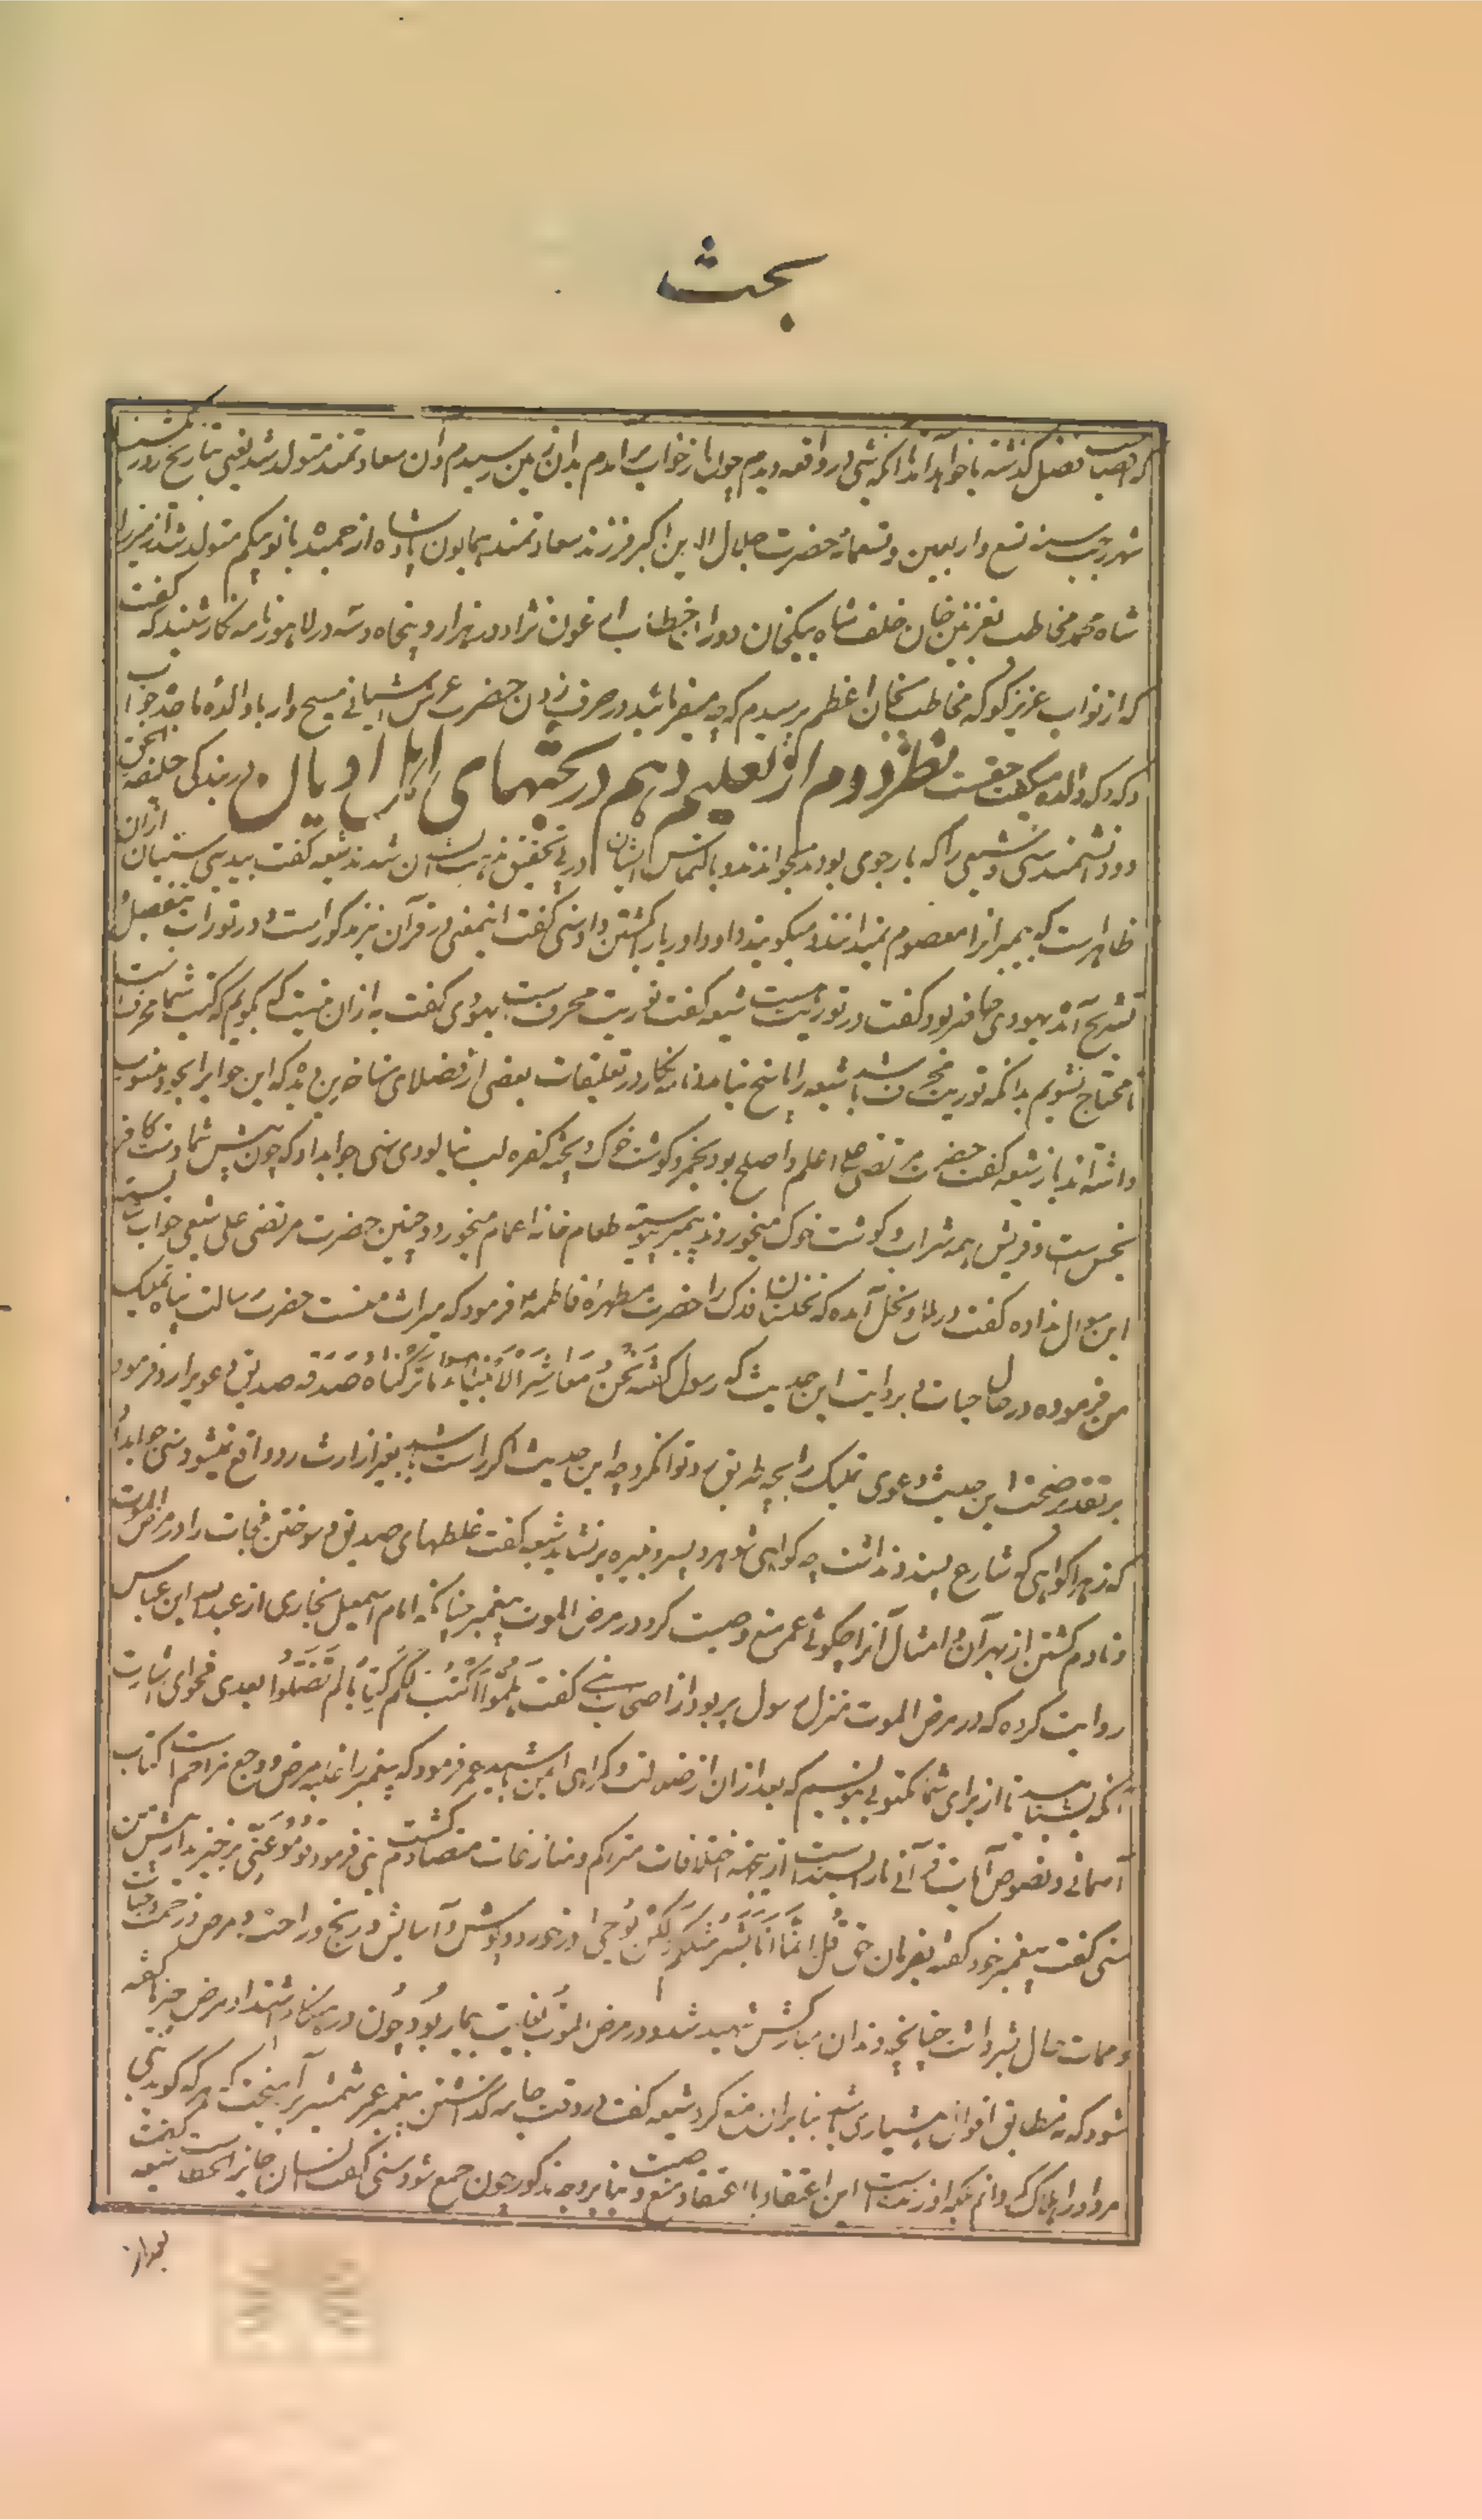 بحث
که صاحب فضل گذشته یا خواهد آمد آنکه شبی در واقعه دیدم چون از خواب برآمدم بدان زمین رسیدم آن سعادتمند متولد شد یعنی بتاریخ روز یکشنبه
شهر رجب سنه تسع و اربعین و تسعمائة حضرت جلال الدین اکبر فرزند سعادتمند همایون پادشاه از حمیده بانو بیگم متولد شد از میرزا
شاه محمد مخاطب بغزنین خان خلف شاه بیگخان دوران خطاب ارغون نژاد در هزار و پنجاه و سه در لاهور نامه نگار شنید که گفت
که از نواب عزیز کوکه مخاطب بخان اعظم پرسیدم که چه میفرمایند در حرف زدن حضرت عرش آشیانی مسیح وار با والده ماجده جواب
داد که والده میگفت حق است نظر دوم از تعلیم دهم در بحثهای اهل ادیان در بندگی خلیفة الحق
دو دانشمند سنی و شیعی را که باز جوی بودند میخواندند و بالتماس ایشان در پی تحقیق مذهب ایشان شدند شیعه گفت بیدینی سنیان ازان
ظاهر است که پیمبر انرا معصوم نمیدانند و میگویند داود اوریا را کشتن داد سنی گفت اینمعنی در قرآن نیز مذکور است و در تورات بتفصیل
تشریح آمده یهودی حاضر بود گفت در توریت هست شیعه گفت توریت محرف است یهودی گفت به ازان نیست که بگویم که کتب شما محرف است
تا محتاج نشویم بدانکه توریت محرف باشد شیعه را پاسخ نیامد نامه نگار در تعلیقات بعضی از فضلای متاخرین دیده که این جواب را بخود منسوب
داشته اند باز شیعه گفت حضرت مرتضی علی اعلم و اصلح بود بخمر و گوشت خوک و پخته کفره لب نیالودی سنی جواب داد که چون پیش شما دست کافر
نجس است و قریش همه شراب و گوشت خوک میخوردند پیمبر پیوسته طعام خانه اعمام میخورد و چنین حضرت مرتضی علی شیعی جواب شایسته
این سوال نداده گفت در ملل و نحل آمده که نخلستان فدک را حضرت مطهره فاطمه فرمود که میراث منست حضرت رسالت پناه تملیک
من فرموده در حال حیات و بروایت این حدیث که رسول گفته نَحْنُ مَعَاشِرَ الأَنْبِیَاءِ مَا تَرَکْنَاهُ صَدَقَةٌ صدیق دعوی را رد فرمود
بر تقدیر صحت این حدیث دعوی تملیک را بچه طریق رد توانکرد چه این حدیث اگر راست باشد بغیر از ارث رد واقع نمیشود سنی جوابداد
که زهرا گواهی که شارع پسندد نداشت چه گواهی شوهر و پسر و نبیره برنشاید شیعه گفت غلطهای صدیق و سوختن فجات را در مرض الموت
و نادم گشتن از بهر آن و امثال آنرا چگوئی عمر منع وصیت کرد در مرض الموت پیغمبر چنانکه امام اسمعیل بخاری از عبدالله ابن عباس
روایت کرده که در مرض الموت منزل رسول پر بود از اصحاب نبی گفت هَلِمُّوا أَکْتُبْ لَکُمْ کِتَاباً لَمْ تَضِلُّوا بعدی فحوای اشارت
آنکه بشتابید تا از برای شما مکتوبی بنویسیم که بعد ازان از ضلالت و گمراهی ایمن باشید عمر فرمود که پیغمبر را غلبه مرض و وجع مزاحمست کتاب
آسمانی و نصوص آیات قرآنی ما را بسنده است ازینجهة اختلافات متراکم و منازعات متصادم گشت نبی فرمود قُومُوا عَنِّی برخیزید از پیش من
سنی گفت پیغمبر خود گفته بفرمان حق قُلْ إِنَّمَا أَنَا بَشَرٌ مِثْلُکُمْ لکن یُوحَی در خورد و پوشش و آسایش و رنج و راحت و مرض و زحمت و حیات
و ممات حال بشر داشت چنانچه دندان مبارکش شهید شد و در مرض الموت بغایت بیمار بود چون در هنگام اشتداد مرض چیزها گفته
شود که نه مطابق اقوال هشیاری باشد بنابر ان منع کرد شیعه گفت در وقت جامه گذاشتن پیغمبر عمر شمشیر برآهیخت که هر که گوید نبی
مرد او را هلاک گردانم بلکه او زنده است این اعتقاد با اعتقاد منع وصیت بنا بر وجه مذکور چون جمع شود سنی گفت انسان جائز الخطاست شیعه گفت
بعد از